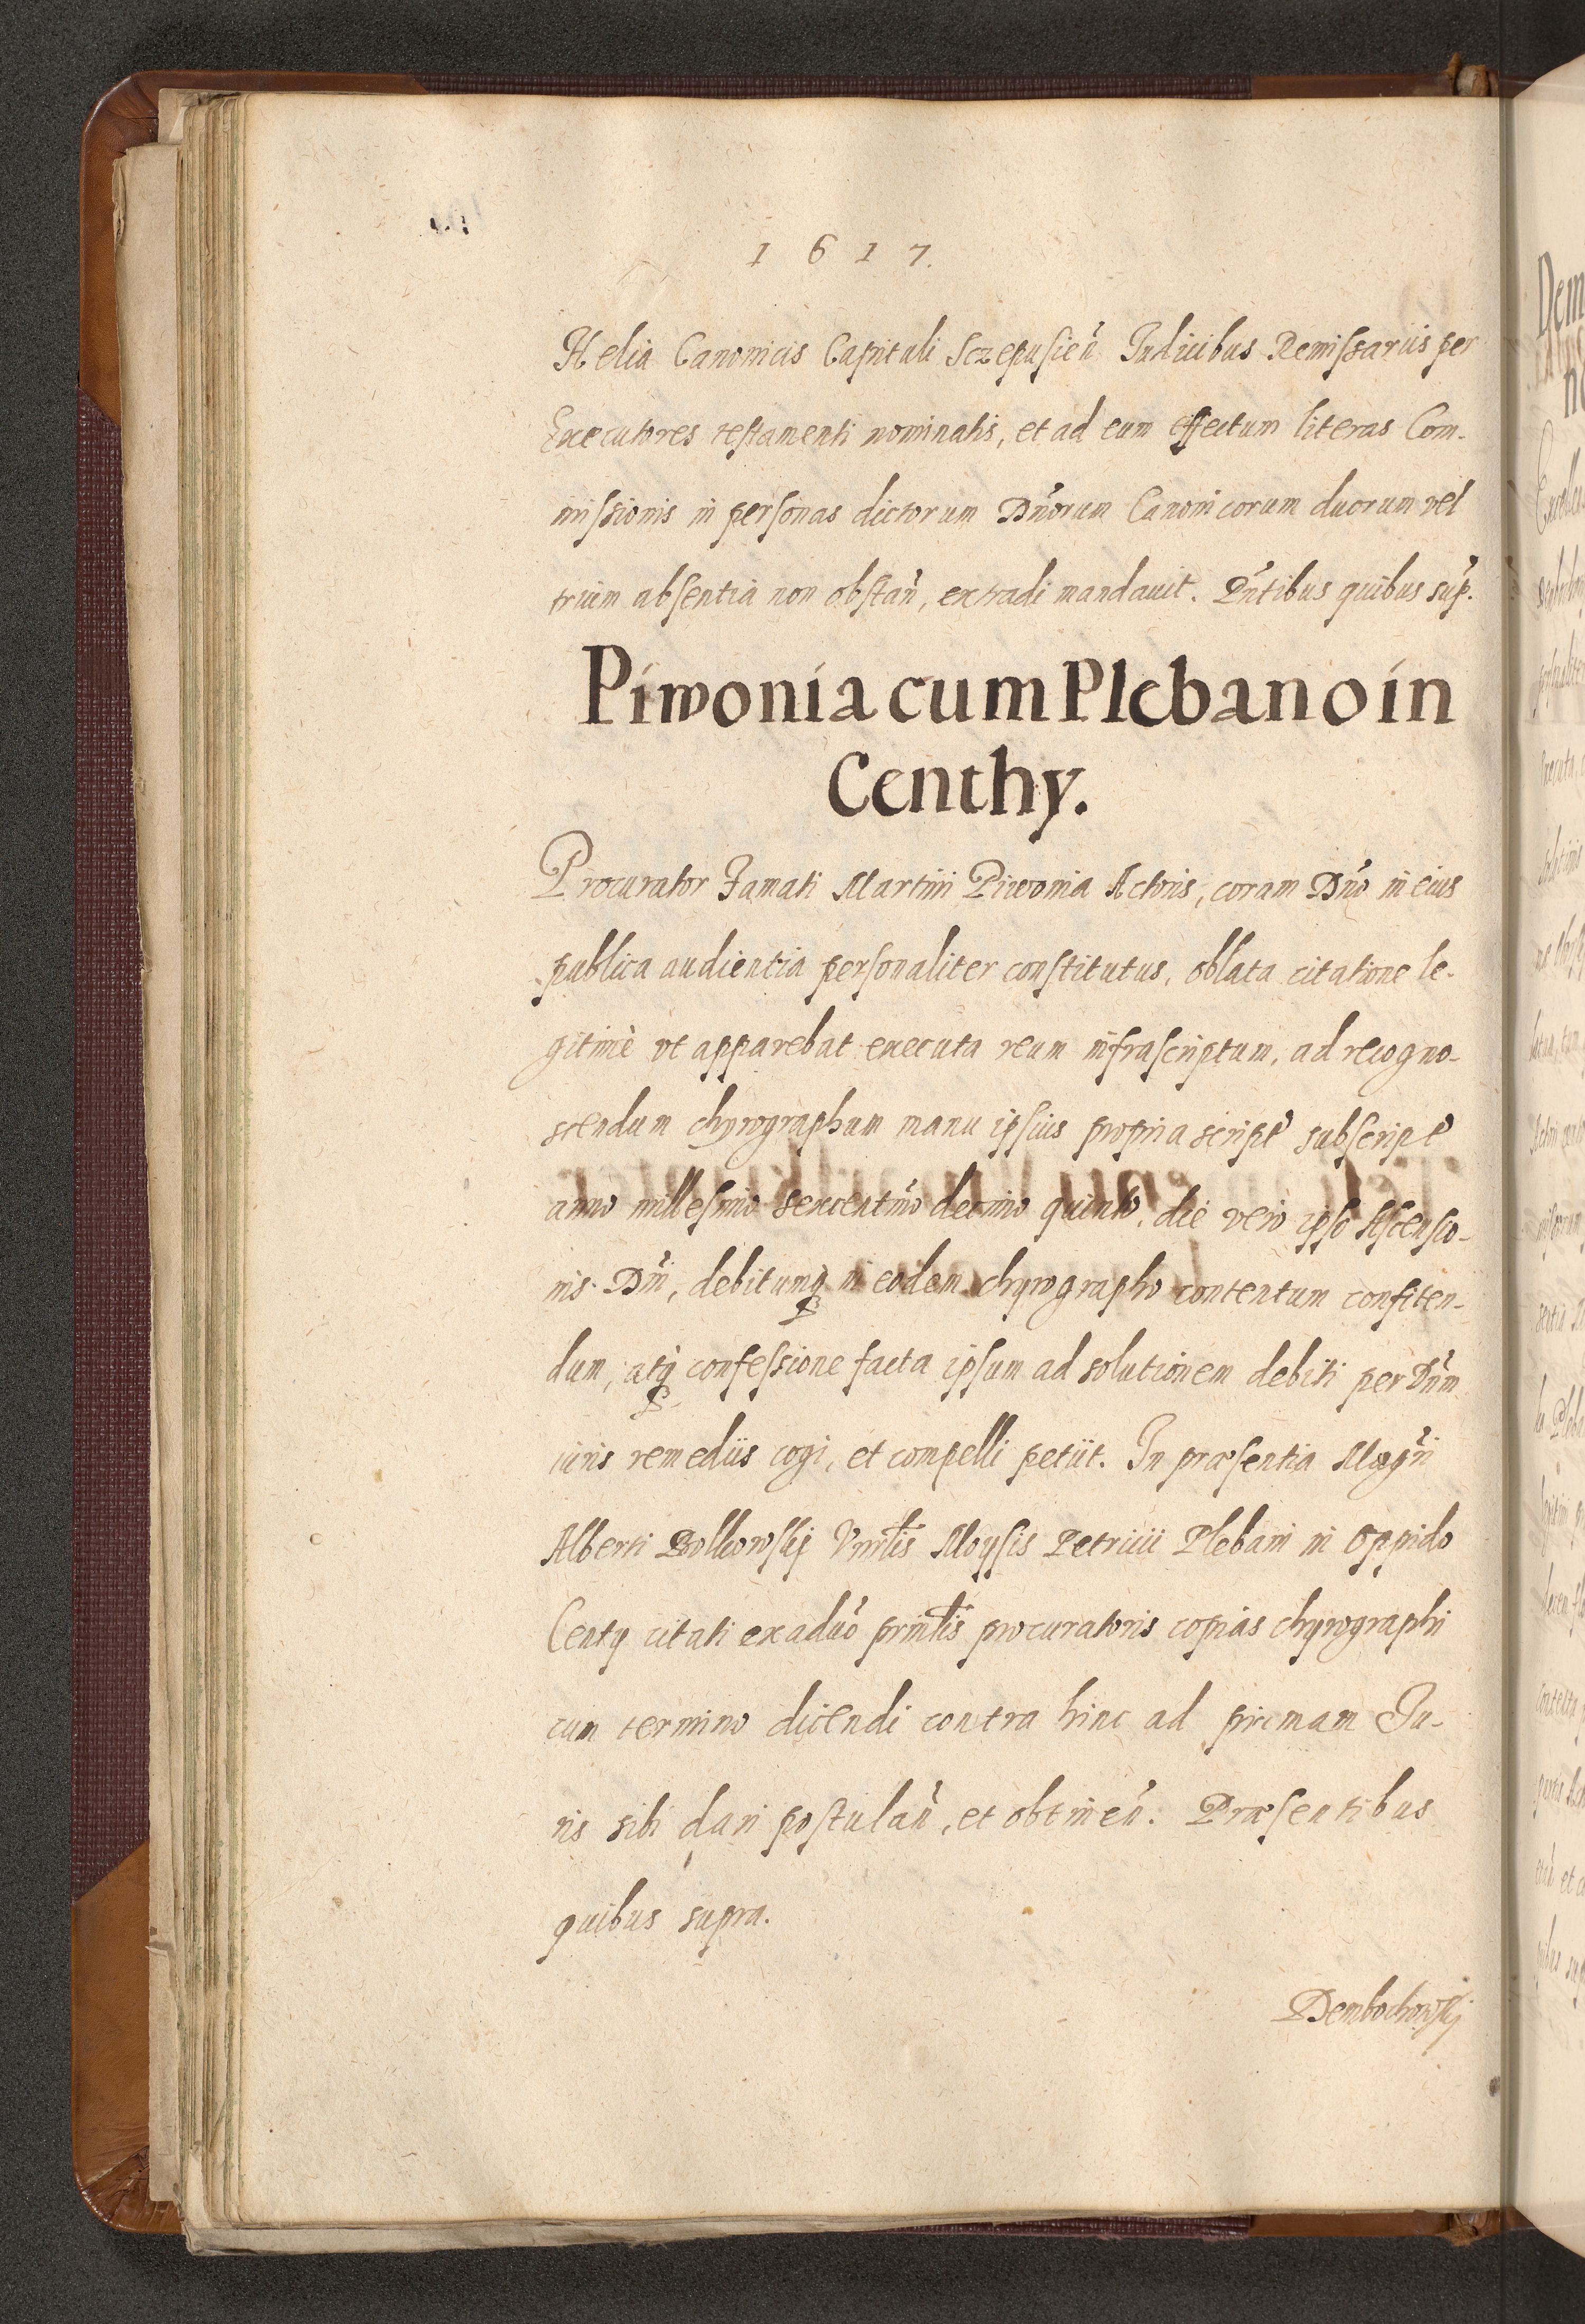 1617.
Helia Canonicis Capituli Sczepusien̄ Iudicibus Remissariis per
Executores testamenti nominatis, et ad eum effectum literas Com-
missionis in personas dictorum Dn̄orum Canonicorum duorum vel
trium absentia non obstan̄, extradi mandauit. Pn̄tibus quibus sup̄.
Piwonia cum Plebano in
Centhy.
Procurator Famati Martini Piwonia Actoris, coram Dn̄o in eius
publica audientia personaliter constitutus, oblata citatione le-
gitimè vt apparebat executa reum infrascriptum, ad recogno-
scendum chyrographum manu ipsius propria script̄ subscript̄
anno millesimo sexcentm̄o decimo quinto, die vero ipso Ascensio-
nis Dn̄i, debitumq; in eodem chyrographo contentum confiten-
dum, atq; confessione facta ipsum ad solutionem debiti per Dn̄m
iuris remediis cogi, et compelli petiit. In præsentia Magr̄i
Alberti Bolkowskij Vnr̄lis Moysis Petricii Plebani in Oppido
Centy citati ex aduo̅ prin̄lis procuratoris copias chyrographi
cum termino dicendi contra hinc ad primam Iu-
ris sibi dari postulan̄, et obtinen̄. Præsentibus
quibus supra.
Dembochowskij